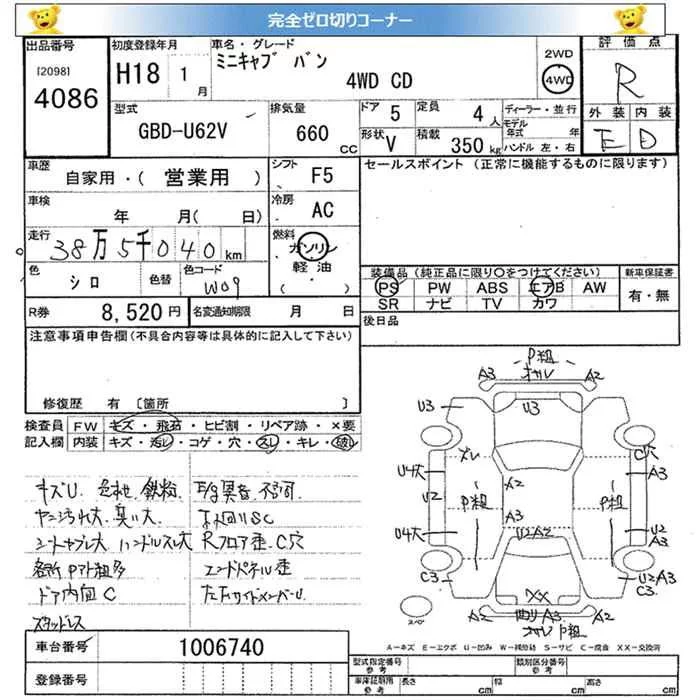 完全ゼロ切りコーナー
出品番号
[2098]
4086
初度登録年月
H18 1月
車名・グレード
ミニキャブ バン
4WD CD
2WD
4WD
評価点
R
外装 内装
E D
型式
GBD-U62V
排気量
660 CC
ドア 5
形状 V
定員 4人
積載 350 kg
ディーラー・並行
モデル年式 年式
ハンドル 左・右
車歴
自家用・(営業用)
シフト F5
セールスポイント (正常に機能するものに限ります)
車検
年 月( 日)
冷房 AC
走行
38万5千040km
燃料
ガソリン
軽油
( )
色
シロ
色替
色コード
W09
装備品 (純正品に限り○をつけてください)
PS PW ABS エアB AW
SR ナビ TV カワ
新車保証書
有・無
R券 8,520円
名変通知期限 月 日
後日品
注意事項申告欄(不具合内容等は具体的に記入して下さい)
修復歴 有 [箇所 ]
検査員記入欄
FW キズ・飛石・ヒビ割・リペア跡・×要
内装 キズ・汚レ・コゲ・穴・スレ・キレ・破レ
キズU
ヤニ汚れ大 臭い大
シートヤブレ大 ハンドルスレ大
各所Pアト粗多
ドア内面C
スタッドレス
Rフロア歪 C穴
エンドパネル歪
P粗
A3 A2
U3 U3
ズレ C穴
U4大 A2 A3
U2 P粗 P粗
A3
U4大 U2A2 U2 A3
C3 XX U2A3 C3
A2 曲り A3 A2
P粗
スペア
A−キズ E−エクボ U−凹み W−補修跡 S−サビ C−腐食 XX−交換済
車台番号 1006740
登録番号
型式指定番号 参考
類別区分番号 参考
車庫証明用 参考
長さ cm
幅 cm
高さ cm